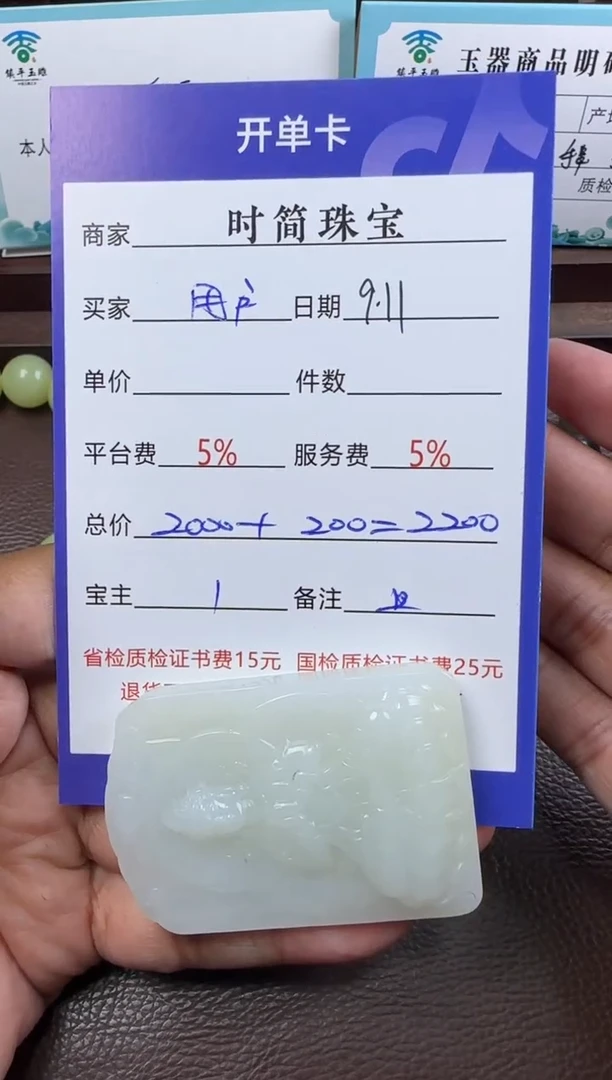 玉器商品明
本人
产
质检
开单卡
商家 时简珠宝
买家 用户 日期 9.11
单价 件数
平台费 5% 服务费 5%
总价 2000+ 200=2200
宝主 1 备注
省检质检证书费15元 国检质检证书费25元
退货